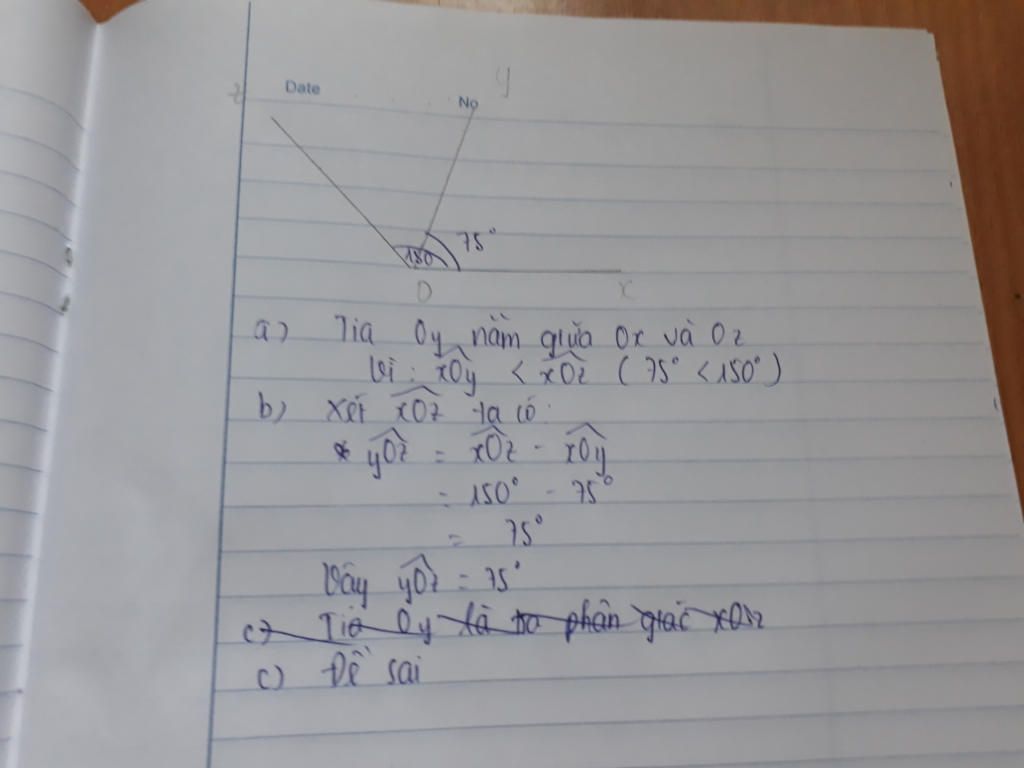 z
Date
No
y
75°
150
O
x
a) Tia Oy nằm giữa Ox và Oz
Vì : xOy < xOz ( 75° < 150° )
b) Xét xOz ta có :
yOz = xOz - xOy
= 150° - 75°
= 75°
Vậy yOz = 75°
c) Tia Oy là tia phân giác xOz
c) Đề sai